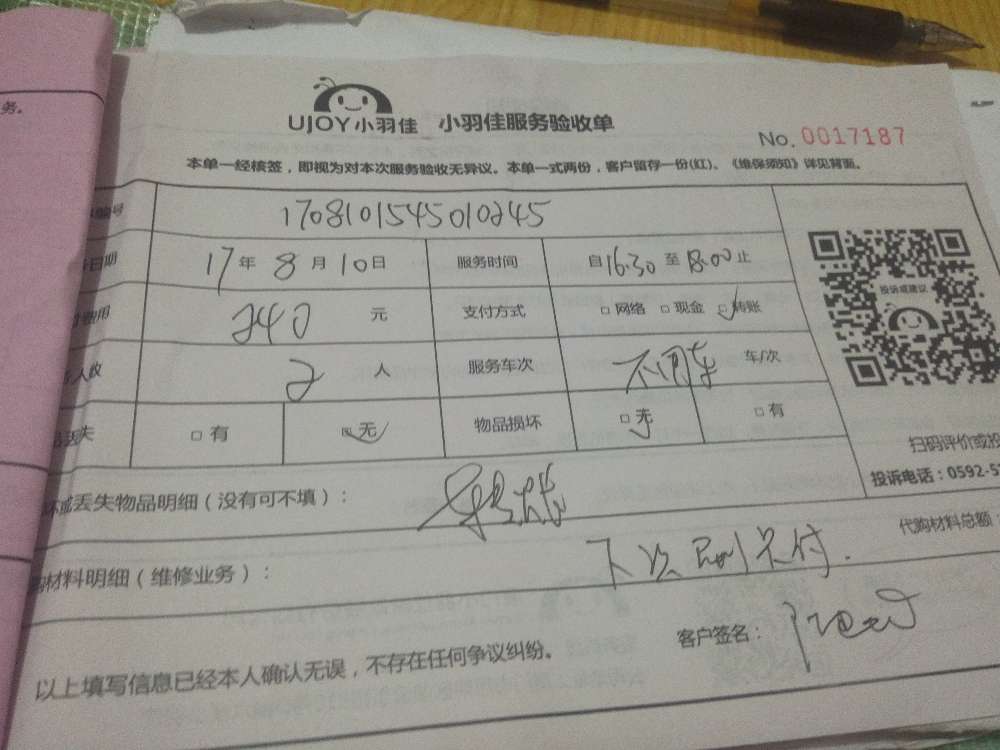 务。
UJOY小羽佳 小羽佳服务验收单
No. 0017187
本单一经核签，即视为对本次服务验收无异议。本单一式两份，客户留存一份(红)、《维保须知》详见背面。
编号 1708101545010245
日期 17年8月10日 服务时间 自16:30至18:00止
费用 240 元 支付方式 □网络 □现金 □转账
人数 2 人 服务车次 不用车 车/次
丢失 □有 □无 物品损坏 □无 □有
投诉或建议
扫码评价或投
投诉电话：0592-5
坏或丢失物品明细（没有可不填）：
代购材料总额：
购材料明细（维修业务）：
下次刷卡付.
以上填写信息已经本人确认无误，不存在任何争议纠纷。
客户签名：